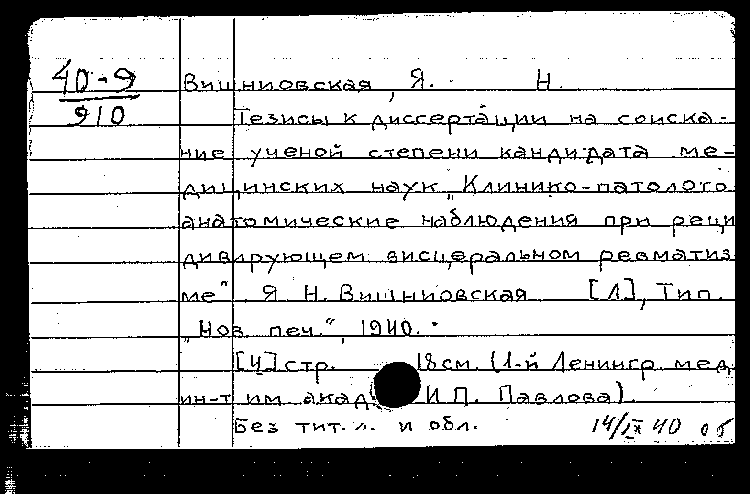 40-9
910
Вишниовская, Я. Н.
Тезисы к диссертации на соиска-
ние ученой степени кандидата ме-
дицинских наук „Клинико-патолого
анатомические наблюдения при реци
дивирующем висцеральном ревматиз
ме" Я Н. Вишниовская [Л], Тип.
„Нов. печ.", 1940.
[4] стр. 18 см. (1-й Ленингр. мед.
ин-т им. акад. И П. Павлова).
Без тит. л. и обл. 14/IX 40